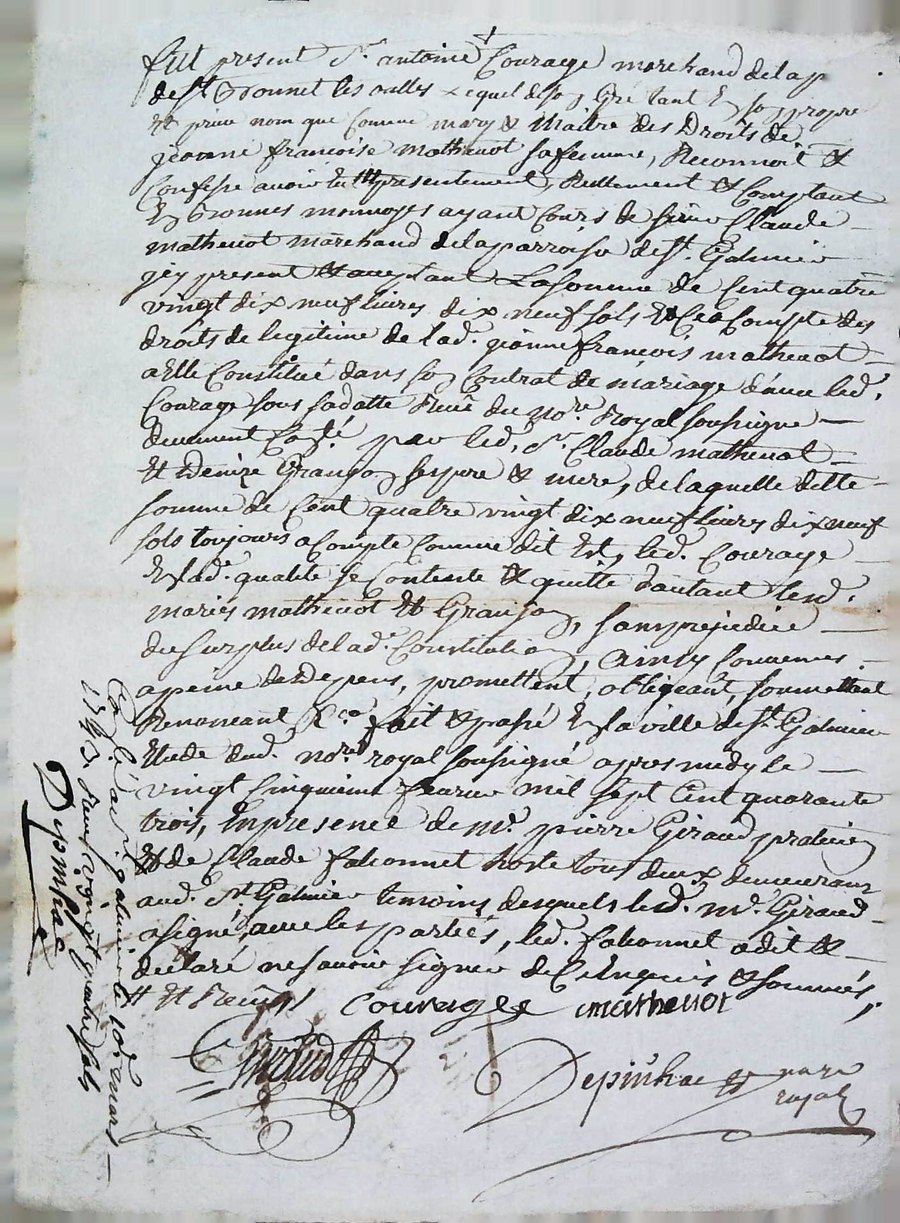 fut present Sr. antoine Courage marchand de la p
de st Bonnet les oulles lequel de son gré tant En son propre
Et privé nom que Comme mary & Maitre des Droits de
jeanne francoise mathevot sa femme, Reconnoit &
Confesse avoir Eu presentement, Reellement & Comptant
En Bonnes monnoyes ayant Cours de sieur Claude
mathevot marchand de la parroisse de st. Galmier
icy present & aceptant La somme de Cent quatre
vingt dix neuf livres dix neuf sols Et Ce a Compte des
droits de legitime de lad. jeanne francois mathevot
a Elle Constitué dans son Contrat de mariage d'avec led.
Courage sous sa datte Reçu du nore. Royal soussigné
deument par led. Sr. Claude mathevot
Et Denize Granjon ses pre & mere, de laquelle dette
somme de Cent quatre vingt dix neuf livres dix neuf
sols toujours a Compte Comme dit Est, led. Courage
En lad. qualité se Contente & quitte d'autant lesd.
mariés mathevot Et Granjon, sans prejudice
du surplus de lad. Constitution, Ainsy Convenus
a peine de Depens, promettent, obligeant, soumettant
Renonceant &ce. fait & passé En la ville de st. Galmier
Etude dud. nore. royal soussigné apres midy le
vingt sinquieme fevrier mil sept Cent quarante
trois, En presence de mr. pierre Giraud praticien
& de Claude falconnet hoste tous deux demeurans
aud. st. Galmier temoins desquels led. mr. Giraud
a signé, avec les parties, led. falconnet a dit &
declaré ne savoir signer de Ce Enquis & sommés,
# Et Reçus Courage mathevot
Giraud
Depinhac nore
royal
Con.lé a st. galmier le 10e. mars
1743 Reçu vingt quatre sols
Depinhac